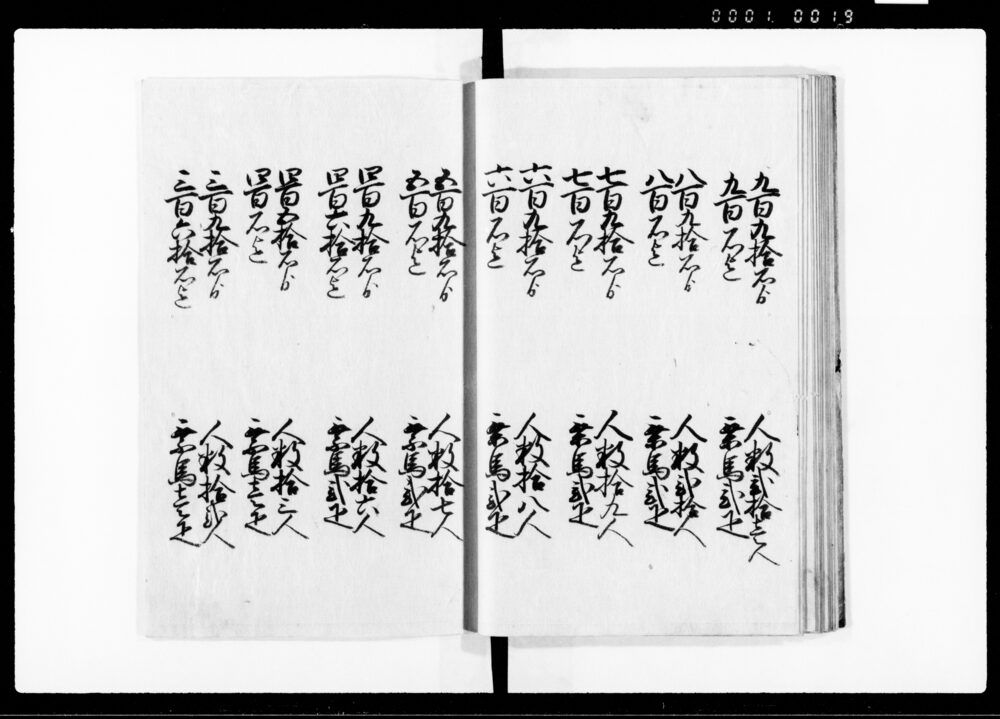 0001. 0019
九百九拾石ゟ
九百石迄
人数弐拾壱人
乗馬弐疋
八百九拾石ゟ
八百石迄
人数弐拾人
乗馬弐疋
七百九拾石ゟ
七百石迄
人数拾九人
乗馬弐疋
六百九拾石ゟ
六百石迄
人数拾八人
乗馬弐疋
五百九拾石ゟ
五百石迄
人数拾七人
乗馬弐疋
四百九拾石ゟ
四百六拾石迄
人数拾六人
乗馬弐疋
四百五拾石ゟ
四百石迄
人数拾三人
乗馬壱疋
三百九拾石ゟ
三百六拾石迄
人数拾弐人
乗馬壱疋